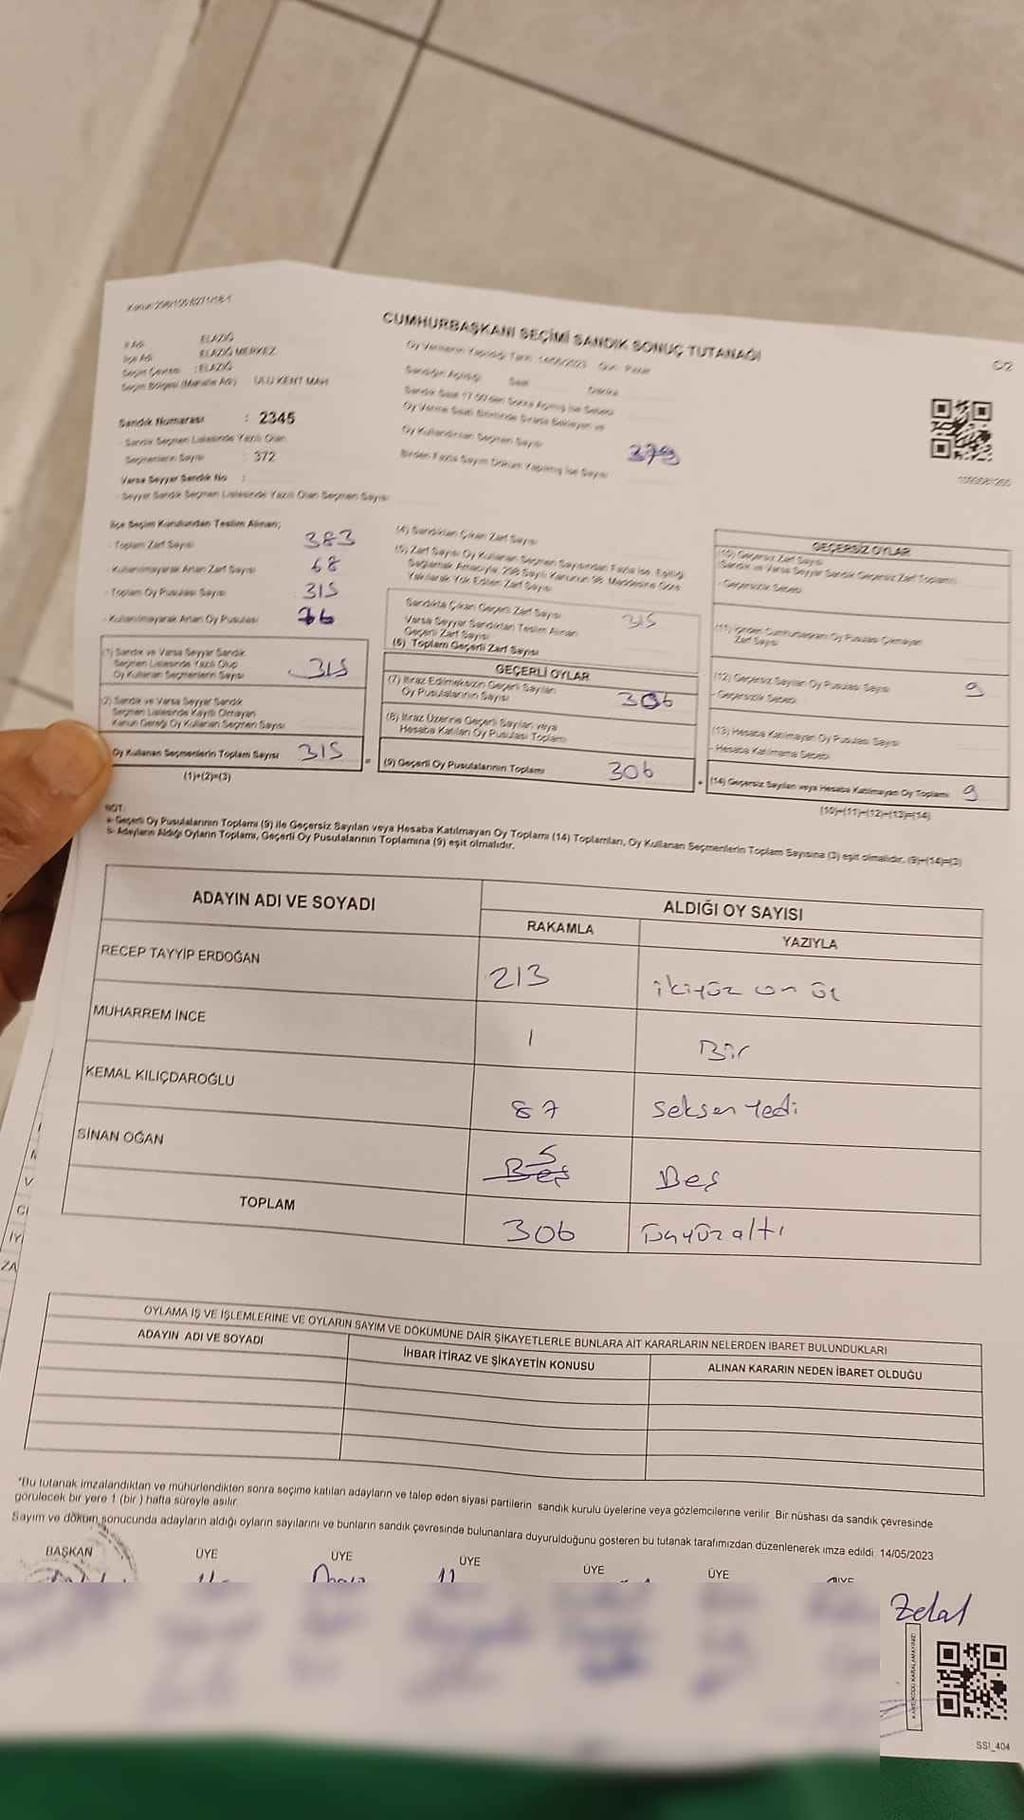 Kanun:298/105 6271/18-1
CUMHURBAŞKANI SEÇİMİ SANDIK SONUÇ TUTANAĞI
İl Adı ELAZIĞ
İlçe Adı ELAZIĞ MERKEZ
Seçim Çevresi : ELAZIĞ
Seçim Bölgesi (Mahalle Adı) ULU KENT MAH
Sandık Numarası : 2345
- Sandık Seçmen Listesinde Yazılı Olan
Seçmenlerin Sayısı : 372
Varsa Seyyar Sandık No :
- Seyyar Sandık Seçmen Listesinde Yazılı Olan Seçmen Sayısı
Oy Vermenin Yapıldığı Tarih 14/05/2023 Gün: Pazar
Sandığın Açıldığı Saat Dakika
Sandık Saat 17.00'den Sonra Açılmış İse Sebebi
Oy Verme Saati Bitiminde Sırada Bekleyen ve
Oy Kullandırılan Seçmen Sayısı
Birden Fazla Sayım Döküm Yapılmış İse Sayısı
İlçe Seçim Kurulundan Teslim Alınan;
- Toplam Zarf Sayısı 383
- Kullanılmayarak Artan Zarf Sayısı 68
- Toplam Oy Pusulası Sayısı 315
- Kullanılmayarak Artan Oy Pusulası
(1) Sandık ve Varsa Seyyar Sandık
Seçmen Listesinde Yazılı Olup
Oy Kullanan Seçmenlerin Sayısı 315
(2) Sandık ve Varsa Seyyar Sandık
Seçmen Listesinde Kayıtlı Olmayan
Kanun Gereği Oy Kullanan Seçmen Sayısı
Oy Kullanan Seçmenlerin Toplam Sayısı 315
(1)+(2)=(3)
(4) Sandıktan Çıkan Zarf Sayısı
(5) Zarf Sayısı Oy Kullanan Seçmen Sayısından Fazla İse, Eşitliği
Sağlamak Amacıyla, 298 Sayılı Kanunun 98. Maddesine Göre
Yakılarak Yok Edilen Zarf Sayısı
Sandıkta Çıkan Geçerli Zarf Sayısı 315
Varsa Seyyar Sandıktan Teslim Alınan
Geçerli Zarf Sayısı
(6) Toplam Geçerli Zarf Sayısı
GEÇERLİ OYLAR
(7) İtiraz Edilmeksizin Geçerli Sayılan
Oy Pusulalarının Sayısı 306
(8) İtiraz Üzerine Geçerli Sayılan veya
Hesaba Katılan Oy Pusulası Toplamı
(9) Geçerli Oy Pusulalarının Toplamı 306
GEÇERSİZ OYLAR
(10) Geçersiz Zarf Sayısı
(Sandık ve Varsa Seyyar Sandık Geçersiz Zarf Toplamı)
- Geçersizlik Sebebi
(11) İçinden Cumhurbaşkanı Oy Pusulası Çıkmayan
Zarf Sayısı
(12) Geçersiz Sayılan Oy Pusulası Sayısı 9
- Geçersizlik Sebebi
(13) Hesaba Katılmayan Oy Pusulası Sayısı
- Hesaba Katılmama Sebebi
(14) Geçersiz Sayılan veya Hesaba Katılmayan Oy Toplamı 9
(10)+(11)+(12)+(13)=(14)
NOT:
a- Geçerli Oy Pusulalarının Toplamı (9) ile Geçersiz Sayılan veya Hesaba Katılmayan Oy Toplamı (14) Toplamları, Oy Kullanan Seçmenlerin Toplam Sayısına (3) eşit olmalıdır. (9)+(14)=(3)
b- Adayların Aldığı Oyların Toplamı, Geçerli Oy Pusulalarının Toplamına (9) eşit olmalıdır.
ADAYIN ADI VE SOYADI ALDIĞI OY SAYISI
RAKAMLA YAZIYLA
RECEP TAYYİP ERDOĞAN 213 ikiyüz on üç
MUHARREM İNCE 1 Bir
KEMAL KILIÇDAROĞLU 87 seksen yedi
SİNAN OĞAN 5 Beş
TOPLAM 306 üçyüz altı
OYLAMA İŞ VE İŞLEMLERİNE VE OYLARIN SAYIM VE DÖKÜMÜNE DAİR ŞİKAYETLERLE BUNLARA AİT KARARLARIN NELERDEN İBARET BULUNDUKLARI
ADAYIN ADI VE SOYADI İHBAR İTİRAZ VE ŞİKAYETİN KONUSU ALINAN KARARIN NEDEN İBARET OLDUĞU
*Bu tutanak imzalandıktan ve mühürlendikten sonra seçime katılan adayların ve talep eden siyasi partilerin sandık kurulu üyelerine veya gözlemcilerine verilir. Bir nüshası da sandık çevresinde
görülecek bir yere 1 (bir ) hafta süreyle asılır.
Sayım ve döküm sonucunda adayların aldığı oyların sayılarını ve bunların sandık çevresinde bulunanlara duyurulduğunu gösteren bu tutanak tarafımızdan düzenlenerek imza edildi. 14/05/2023
BAŞKAN ÜYE ÜYE ÜYE ÜYE ÜYE ÜYE
Zelal
KARE KODU KARALAMAYINIZ!
SSI_404